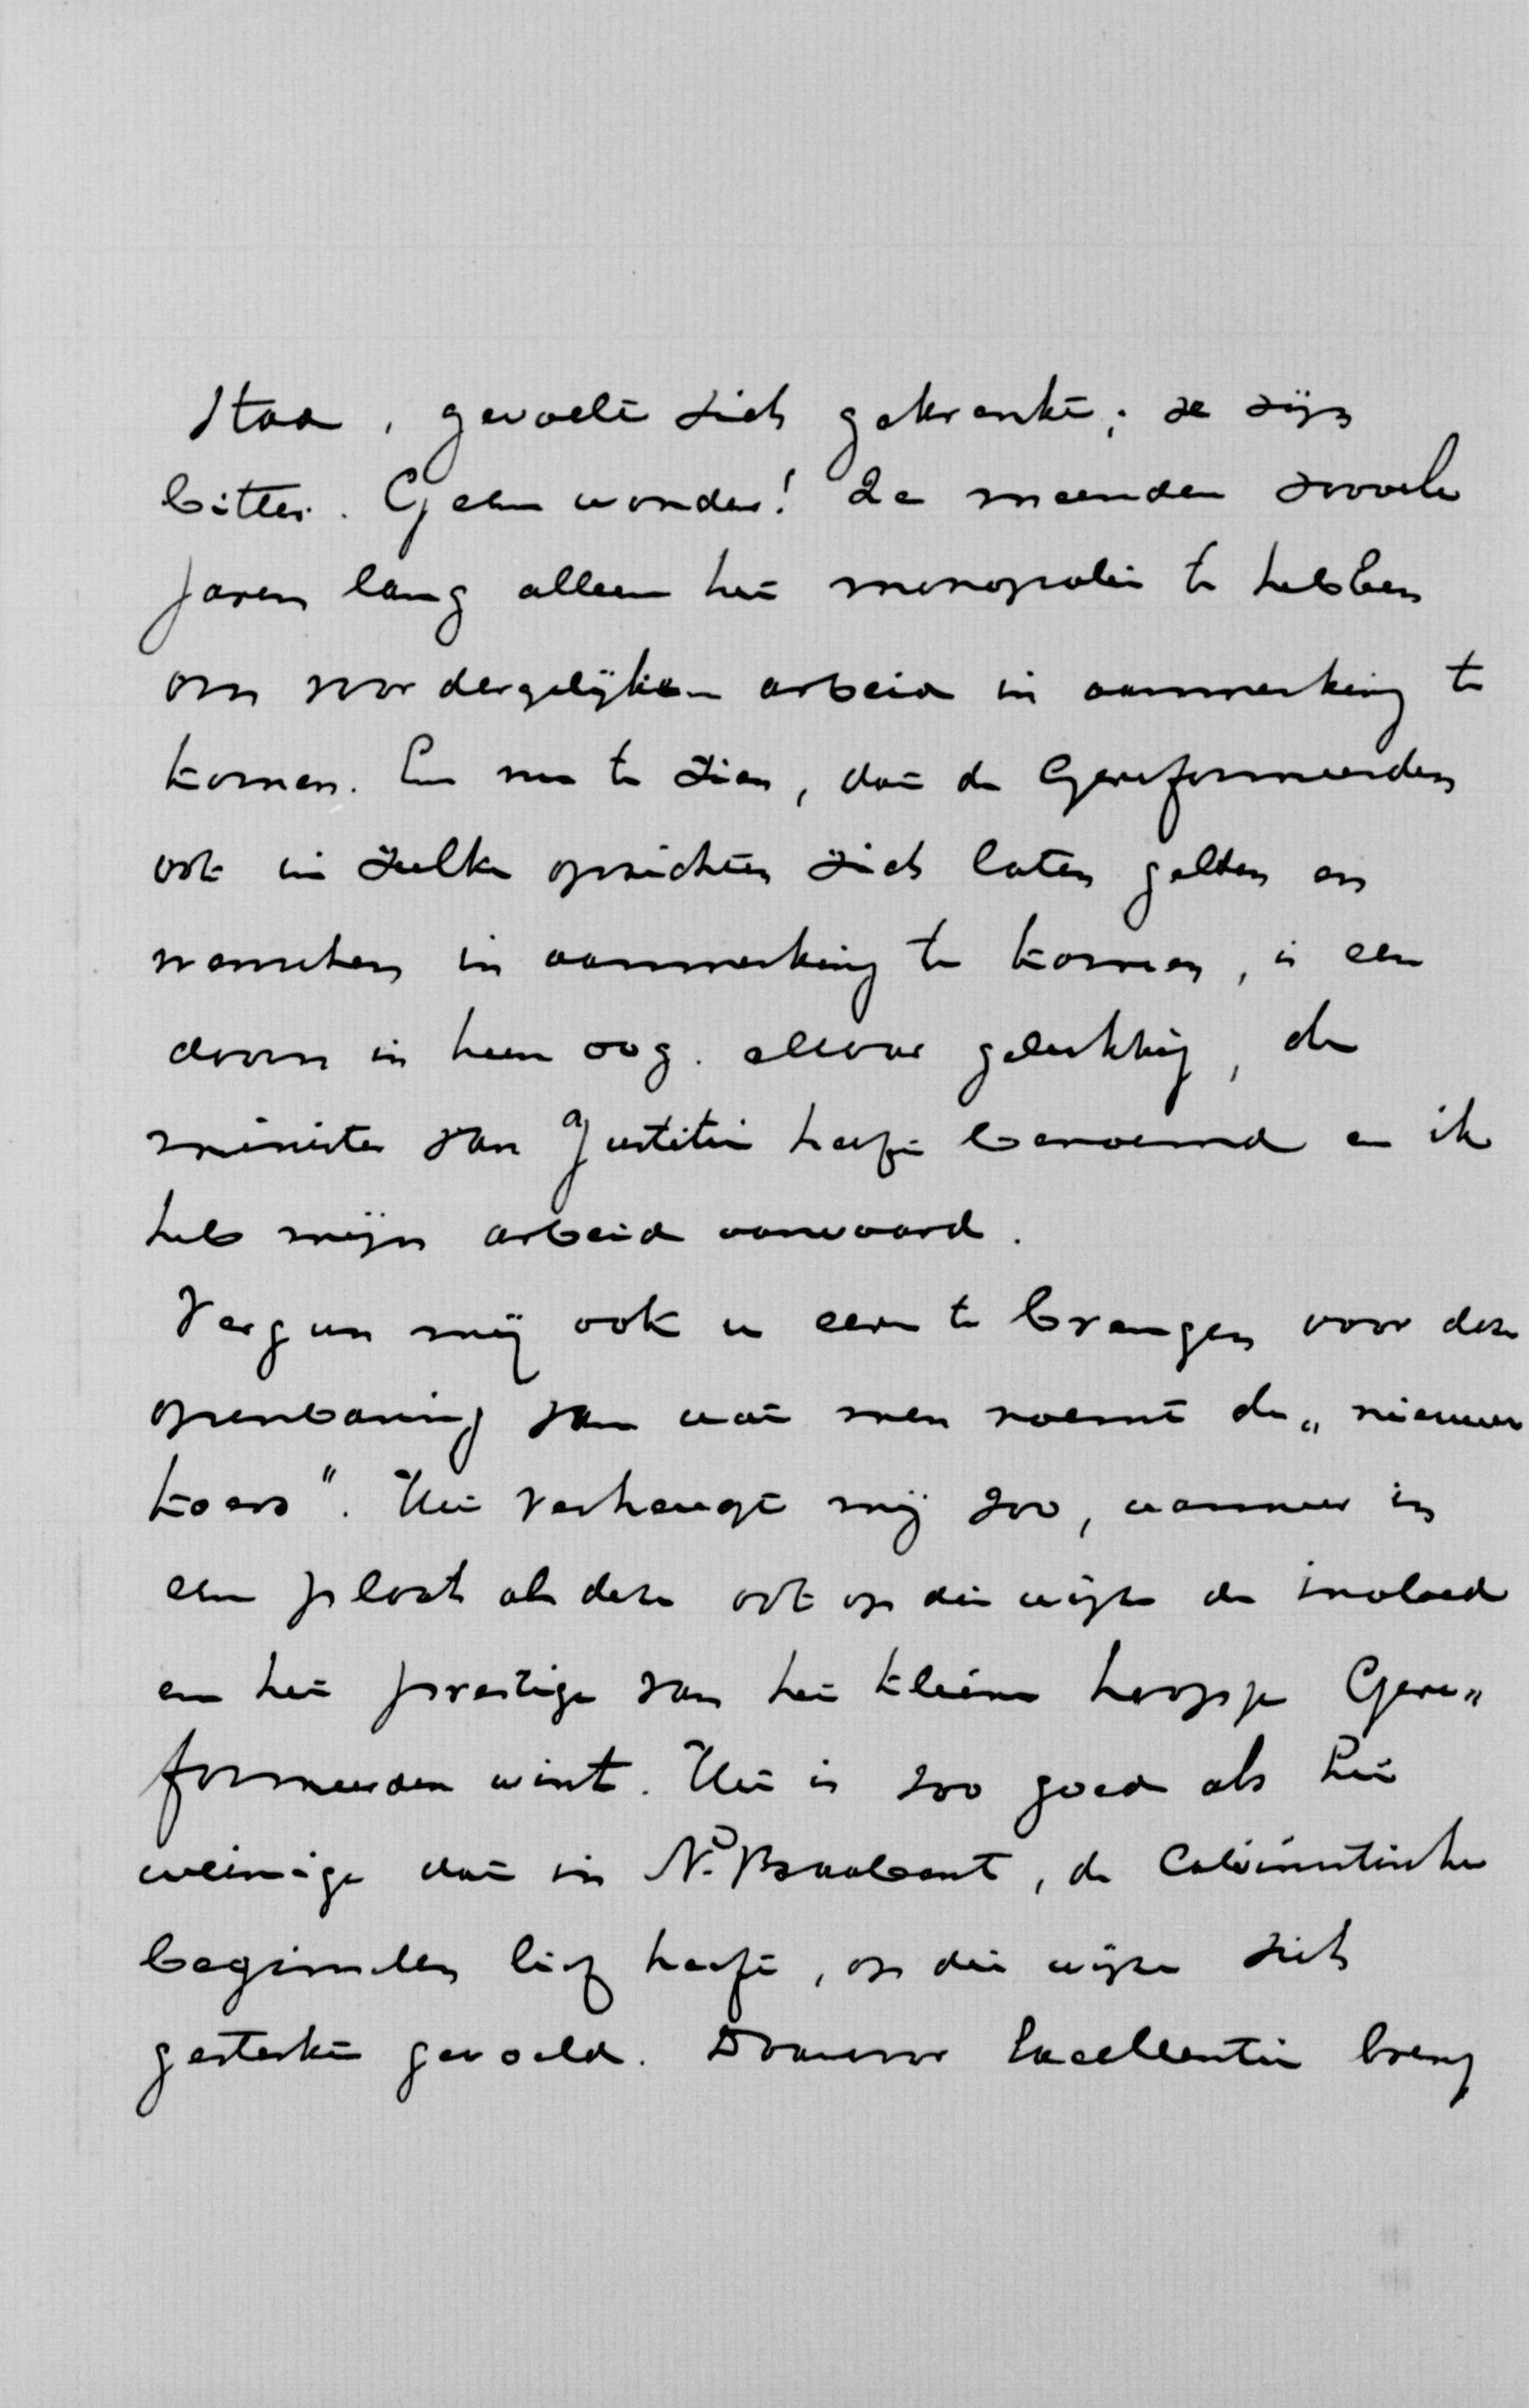 staa, gevoelt zich gekrenkt; ze zijn
bitter. Geen wonder! Ze meenden zoovele
jaren lang alleen het monopolie te hebben
om voor dergelijken arbeid in aanmerking te
komen. En nu te zien, dat de Gereformeerden
ook in zulke opzichten zich laten gelden en
wenschen in aanmerking te komen, is een
doorn in hun oog. Maar gelukkig, de
minister van Justitie heeft benoemd en ik
heb mijn arbeid aanvaard.
Vergun mij ook u eere te brengen voor deze
openbaring van wat men noemt de „nieuwe
koers". Het verheugt mij zoo, wanneer in
een plaats als deze ook op die wijze de invloed
en het prestige van het kleine hoopje Gere„
formeerden wint. Het is zoo goed als het
weinige dat in N. Brabant, de Calvinistische
beginselen lief heeft, op die wijze zich
gesterkt gevoeld. Daarvoor Excellentie breng